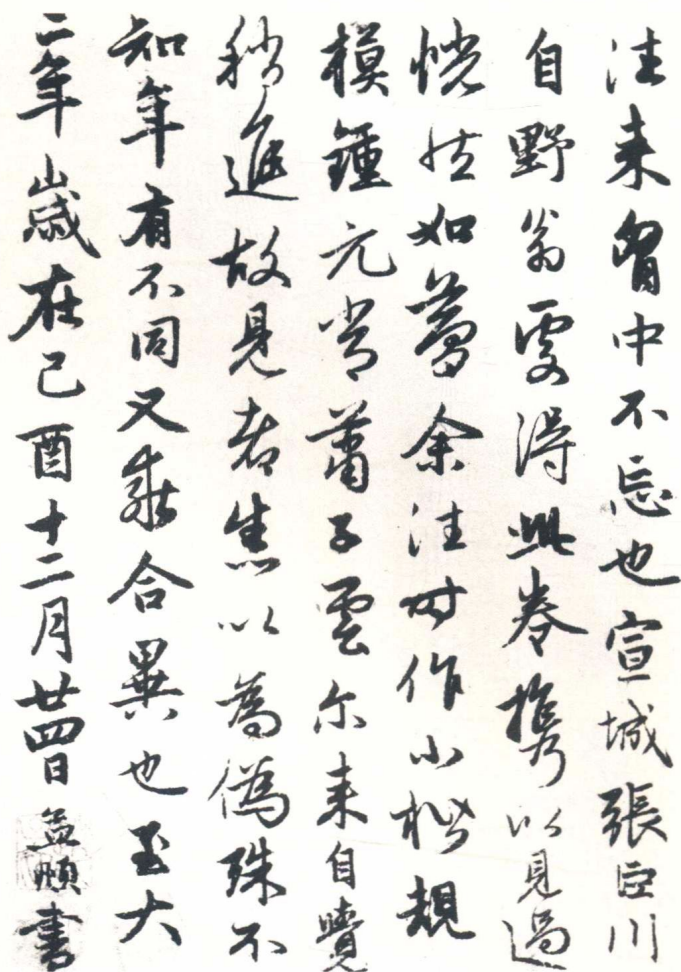 往来胷中不忘也宣城張臣川
自野翁處得此卷携以見過
恍然如夢余往時作小楷規
模鍾元常蕭子雲尔来自覺
稍進故見者焦以為偽殊不
知年有不同又乖合異也至大
二年歲在己酉十二月廿四日孟頫書